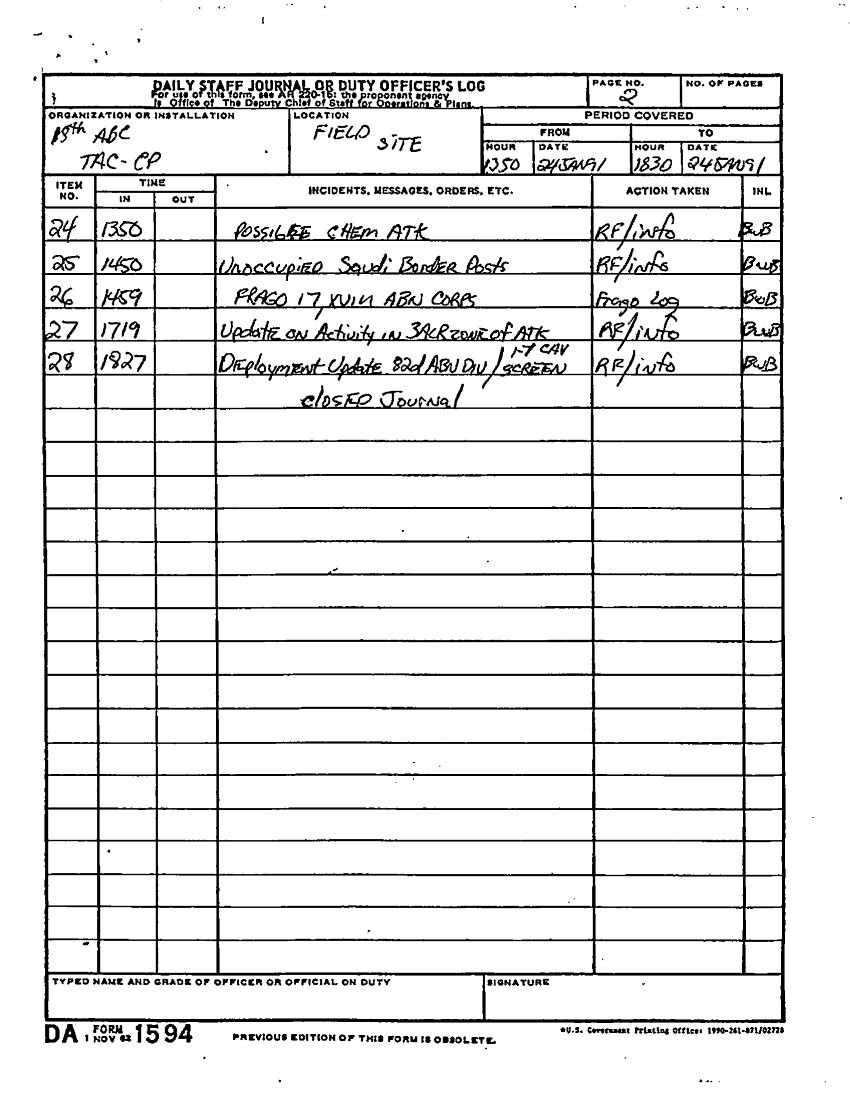 DAILY STAFF JOURNAL OR DUTY OFFICER'S LOG
For use of this form, see AR 220-15; the proponent agency
is Office of The Deputy Chief of Staff for Operations & Plans.
PAGE NO.
2
NO. OF PAGES
ORGANIZATION OR INSTALLATION
18th ABC
TAC-CP
LOCATION
FIELD SITE
PERIOD COVERED
FROM TO
HOUR DATE HOUR DATE
1350 24JAN91 1830 24JAN91
ITEM NO. TIME INCIDENTS, MESSAGES, ORDERS, ETC. ACTION TAKEN INL
IN OUT
24 1350 POSSIBLE CHEM ATK RF/info BWB
25 1450 Unoccupied Saudi Border Posts RF/info BWB
26 1459 FRAGO 17, XVIII ABN CORPS Frago Log BWB
27 1719 Update on Activity in 3ACR ZONE of ATK RF/info BWB
28 1827 Deployment Update 82d ABN DIV / 1-7 CAV SCREEN RF/info BWB
CLOSED Journal
TYPED NAME AND GRADE OF OFFICER OR OFFICIAL ON DUTY
SIGNATURE
DA FORM 1 NOV 62 1594
PREVIOUS EDITION OF THIS FORM IS OBSOLETE.
*U.S. Government Printing Office: 1990-261-871/02728